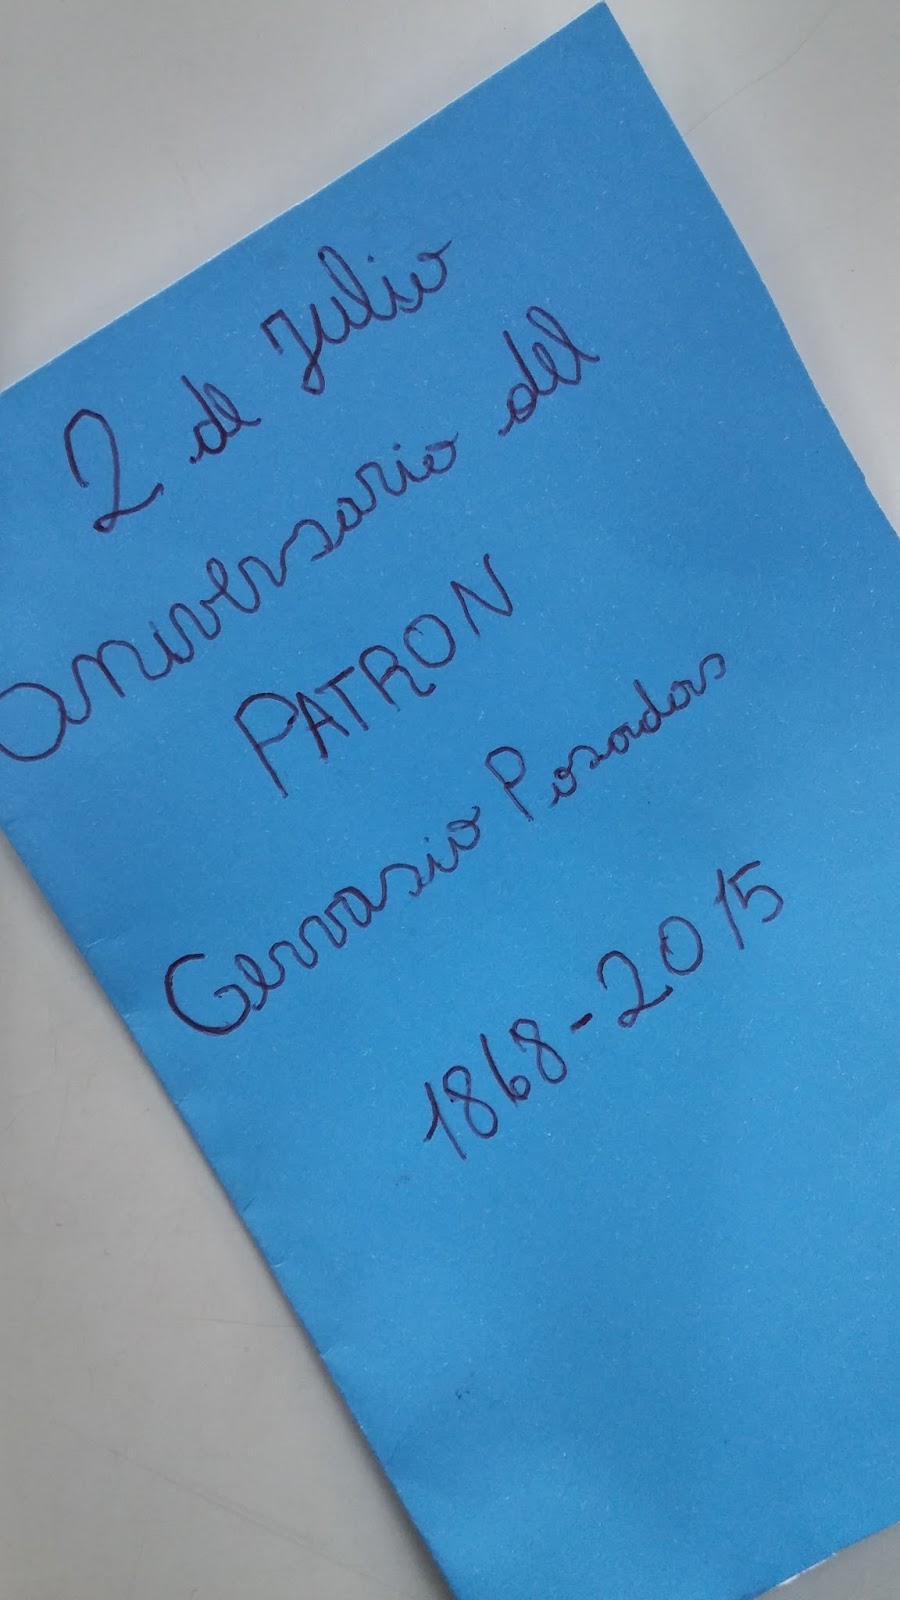 2 de Julio
aniversario del
PATRON
Gervasio Posadas
1868-2015